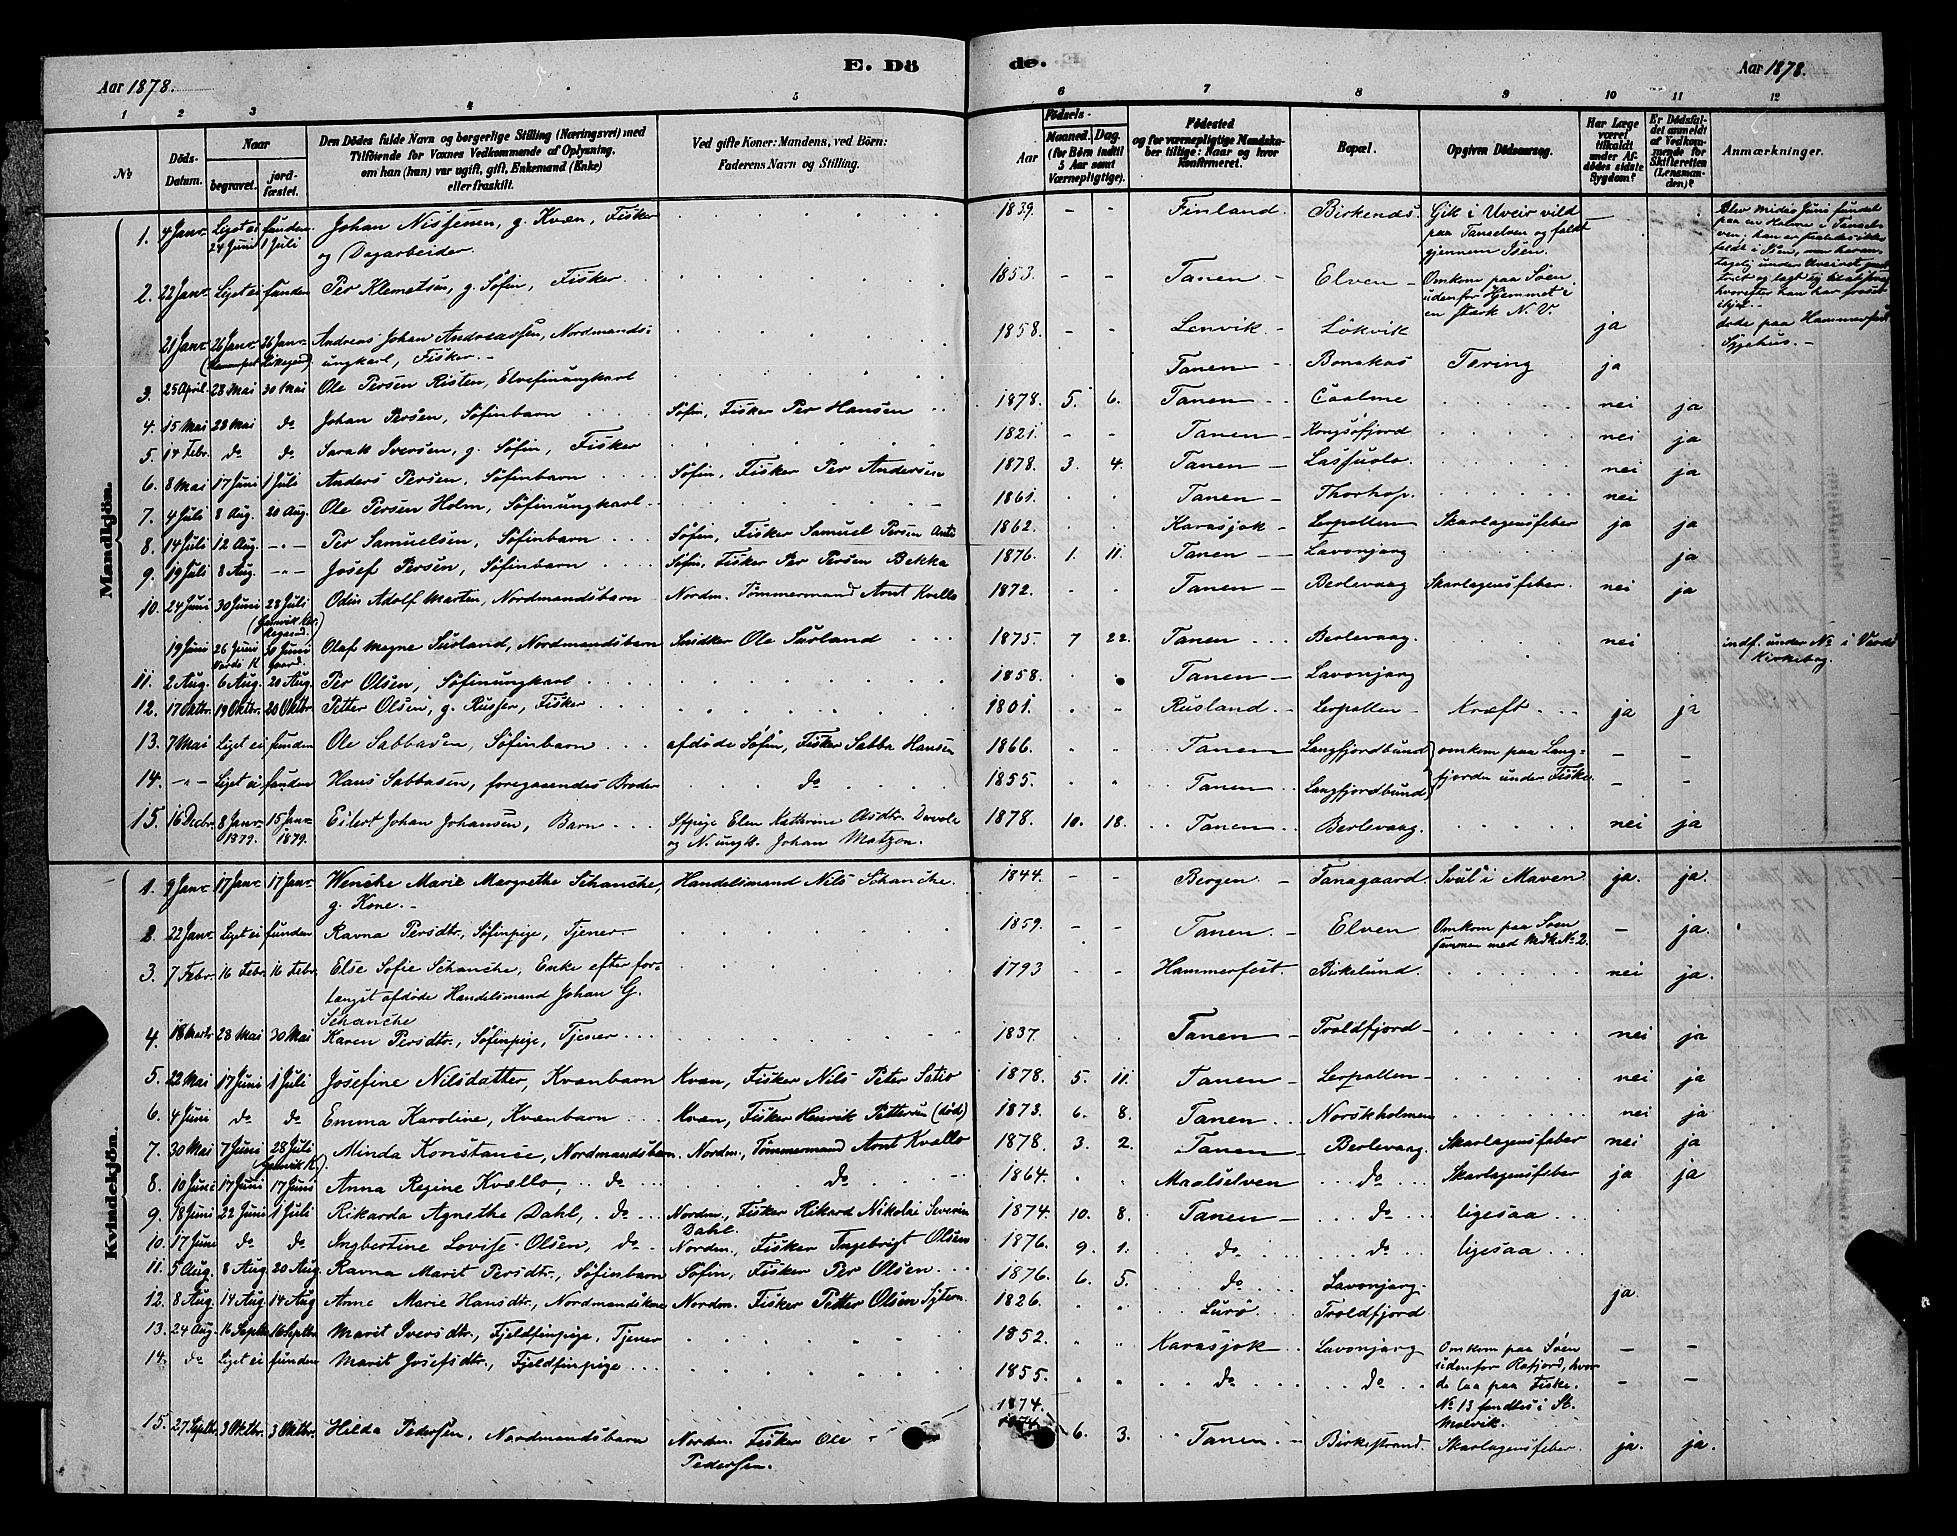 Aar 1878.
E. Dö
de.
Aar 1878.
1 2 3 4 5 6 7 8 9 10 11 12
№
Döds-Datum.
Naar
begravet.
jord-fæstet.
Den Dödes fulde Navn og borgerlige Stilling (Næringsvei) med
Tilföiende for Voxnes Vedkommende af Oplysning,
om han (hun) var ugift, gift, Enkemand (Enke)
eller fraskilt.
Ved gifte Koner: Mandens, ved Börn:
Faderens Navn og Stilling.
Födsels-
Aar
Maaned.
Dag.
(for Börn indtil
5 Aar samt
Værnepligtige).
Födested
og for værnepligtige Mandska-
ber tillige: Naar og hvor
konfirmeret.
Bopæl.
Opgiven Dödsaarsag.
Har Læge
været
tilkaldt
under Af-
dödes sidste
Sygdom?
Er Dödsfal-
det anmeldt
af Vedkom-
mende for
Skifteretten
(Lensman-
den)?
Anmærkninger.
Mandkjön.
1. 4 Janr. Liget ei funden 24 Juni 1 Juli Johan Nissenen, g. Kvæn, Fisker og Dagarbeider. 1839. - - Finland. Birkenæs. Gik i Uveir vild paa Tanaelven og faldt gjennem Isen. -
Blev midts Juni funden
paa en Holme i Tanael-
ven
2. 22 Janr. Liget ei funden Per Klemetsen, g. Söfin, Fisker. 1853. - - Tanen - Elven - Omkom paa Söen udenfor Hjemmet i en stærk N.V.
21 Janr. 26 Janr. 26 Janr. Andreas Johan Andreassen, Nordmands-ungkarl, Fisker. - 1858. - - Lenvik. - Lökvik ja döde paa Hammerfest Sygehus. -
3. 25 April. 28 Mai 30 Mai Ole Persen Risten, Elvefinungkarl Tanen - Bonakas Tæring ja
4. 15 Mai 28 Mai do Johan Persen, Söfinbarn Söfin, Fisker Per Hansen 1878. 5. 6. Tanen Caalme nei ja
5. 14 Febr. do do Sarak Iversen, g. Söfin, Fisker 1821. - - Tanen - Kongsöfjord nei ja
6. 8 Mai 17 Juni 1 Juli Anders Persen, Söfinbarn Söfin, Fisker Per Andersen 1878. 3. 4. Tanen - nei ja
7. 4 Juli 8 Aug. 20 Aug. Ole Persen Holm, Söfinungkarl 1861. Tanen - Thorhop. nei
8. 14 Juli 12 Aug. -"- Per Samuelsen, Söfinbarn Söfin, Fisker Samuel Persen Anti 1862. Karasjok - Lerpollen - Skarlagensfeber ja ja
9. 19 Juli 8 Aug. -"- Josef Persen, Söfinbarn Söfin, Fisker Per Persen Bekka 1876. 1. 11. Tanen - Lavonjarg ja
10. 24 Juni 30 Juni 28 Juli Odin Adolf Marten, Nordmandsbarn Nordm. Tömmermand Arnt Kvello 1872. Tanen - Berlevaag Skarlagensfeber. nei ja
19 Juni 26 Juni 30 Juni Olaf Magne Susland, Nordmandsbarn Snedker Ole Susland 1875. 7 22. Tanen Berlevaag. nei indf. under No i Vardö Kirkebog.
11. 2 Aug. 6 Aug. 20 Aug. Per Olsen, Söfinungkarl 1858. Tanen - Lavonjarg
12. 17 Oktbr. 19 Oktbr. 20 Oktbr Petter Olsen, g. Russer, Fisker 1801. Rusland. - Lerpollen - Kræft. ja ja
13. 7 Mai Liget ei funden Ole Sabbasen, Söfinbarn afdöde Söfin, Fisker Sabba Hansen 1866. Tanen Langfjordbund omkom paa Lang-fjorden under Fiske. - -
14. -"- Liget ei funden Hans Sabbasen, foregaaendes Broder do 1855. Tanen Langfjordbund - -
15. 16 Decbr. 8 Janr. 1879. 15 Janr 1879. Eilert Johan Johansen, Barn Elen Kathrine og N. ungk. Johan Matzon. 1878. 10. 18. Tanen Berlevaag. nei ja
Kvindekjön.
1. 9 Janr 17 Janr 17 Janr Wenche Marie Margrethe Schanche, g. Kone. - Handelsmand Nils Schanche. 1844. - - Bergen - Tanagaard. Svul i Maven ja. ja.
2. 22 Janr. Liget ei funden Ravna Persdtr., Söfinpige, Tjener. 1859. - - Tanen. - Elven Omkom paa Söen sammen med Mdk. No 2. - ja.
3. 7 Febr. 16 Febr. 16 Febr. Else Sofie Schanche, Enke efter for-længst afdöde Handelsmand Johan G. Schanche 1793 - - Hammerfest. Birkelund. nei ja.
4. 18 Marts 28 Mai 30 Mai Karen Persdtr., Söfinpige, Tjener 1837. Tanen - Troldfjord - nei ja
5. 22 Mai 17 Juni 1 Juli Josefine Nilsdatter, Kvænbarn Kvæn, Fisker Nils Peter 1878. 5. 11. Tanen - Lerpollen - nei ja
6. 4 Juni do do Emma Karoline, Kvænbarn Kvæn, Fisker Henrik Pettersen (död) 1873. 6. 8. Tanen - Norskholmen nei ja
7. 30 Mai 7 Juni 28 Juli Minda Konstance, Nordmandsbarn. Nordm., Tömmermand Arnt Kvello 1878. 3. 2. Tanen - Berlevaag. Skarlagensfeber nei ja
8. 10 Juni 17 Juni 17 Juni Anna Regine Kvello, do do 1864. Maalselven do Skarlagensfeber ja ja
9. 18 Juni 22 Juni 1 Juli Rikarda Agnethe Dahl, do Nordm., Fisker Rikard Nikolai Severin Dahl. 1874. 10. 8. Tanen - do ligesaa
10. 17 Juni do do Ingbertine Lovise Olsen, do Nordm., Fisker Ingebrigt Olsen 1876. 9. 1. do do ligesaa
11. 5 Aug. 8 Aug. 20 Aug. Ravna Marit Persdtr., Söfinbarn Söfin, Fisker Per Olsen 1876. 6. 5. do Lavonjarg.
12. 8 Aug. 14 Aug 14 Aug Anne Marie Hansdtr., Nordmandskone Nordm. Fisker Petter Olsen 1826. Lurö Troldfjord ja.
13. 24 Aug. 16 Septbr 16 Septbr. Marit Iversdtr., Fjeldfinpige, Tjener 1852. Karasjok Lavonjarg Omkom paa Söen udenfor Rafjord, hvor de laa paa Fiske. No 13 fandtes i St. Molvik. - -
14. do Liget ei funden Marit Josefsdtr., Fjeldfinpige 1855. do do - -
15. 27 Septbr. 3 Oktbr. 3 Oktbr. Hilda Pedersen, Nordmandsbarn Nordm. Fisker Ole Pedersen. 1874. 6. 3. Tanen - Birkestrand. Skarlagensfeber. ja. ja.